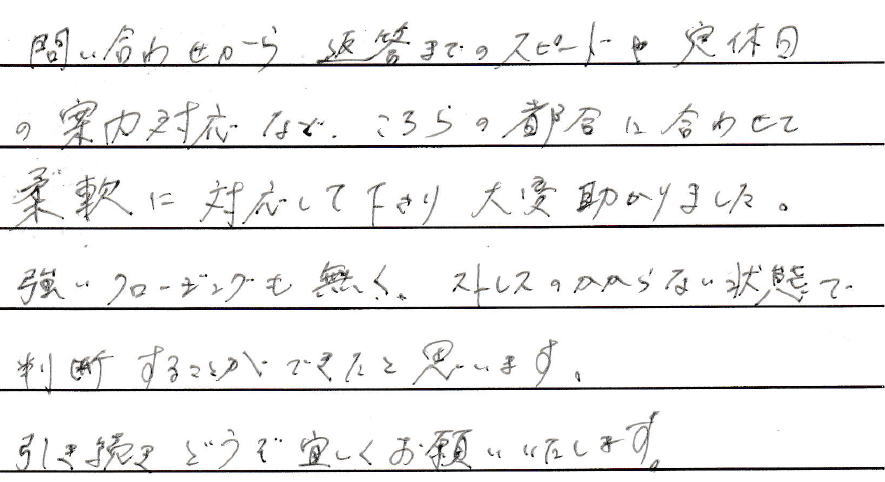 問い合わせから 返答までのスピードや 定休日
の案内対応など、こちらの都合に合わせて
柔軟に 対応して下さり 大変助かりました。
強いクロージングも 無く、ストレスのかからない状態で
判断することができたと思います。
引き続き どうぞ 宜しくお願いいたします。